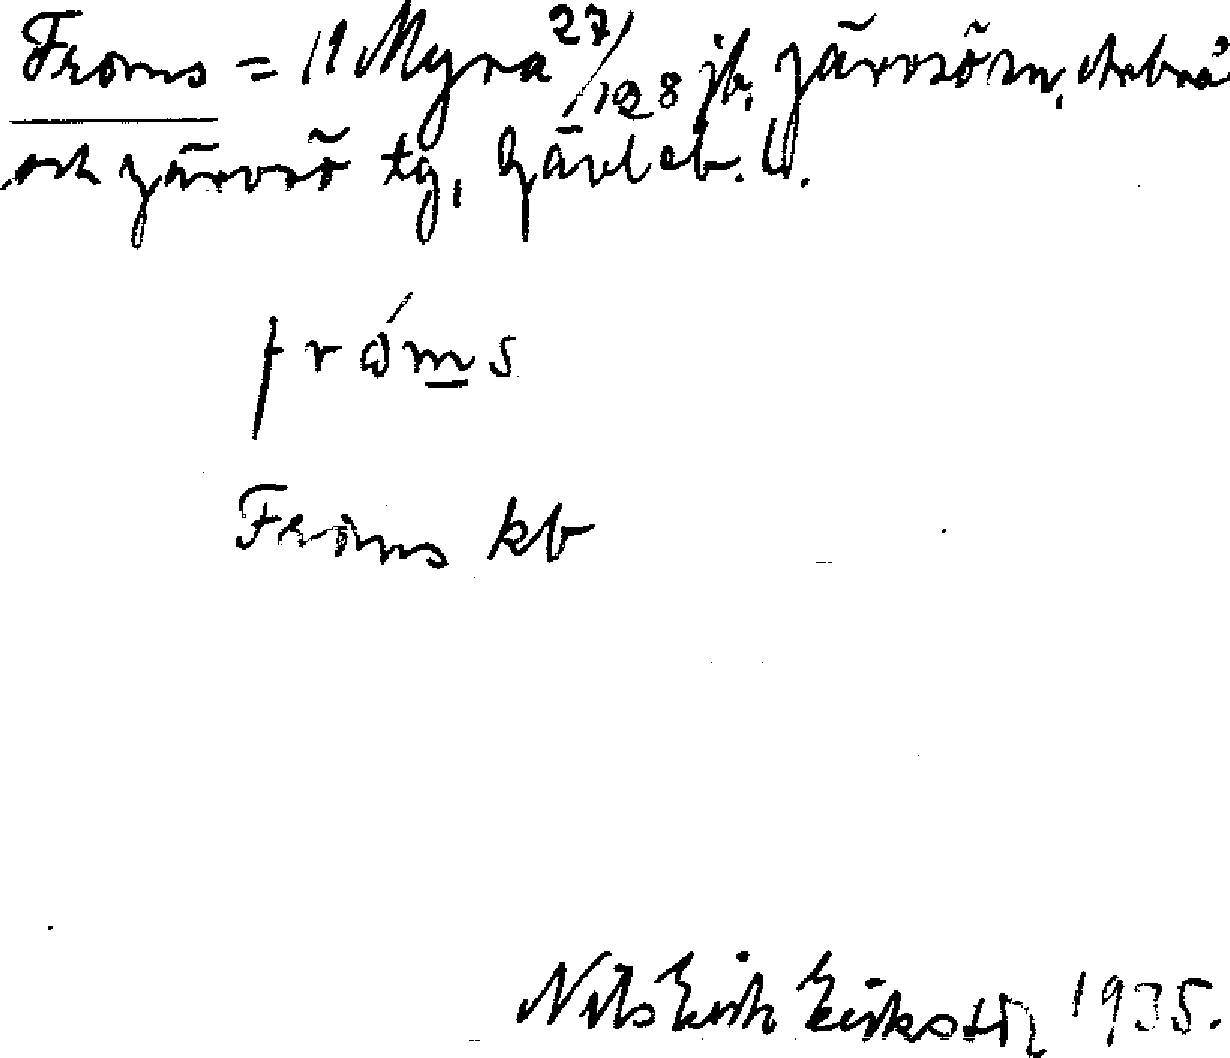 Froms = 11 Myra 27/128 jb, Järvsö sn, Arbrå
och Järvsö tg, Gävleb. l.
fróms
Fröms kb
Nils Erik Eriksson 1935.